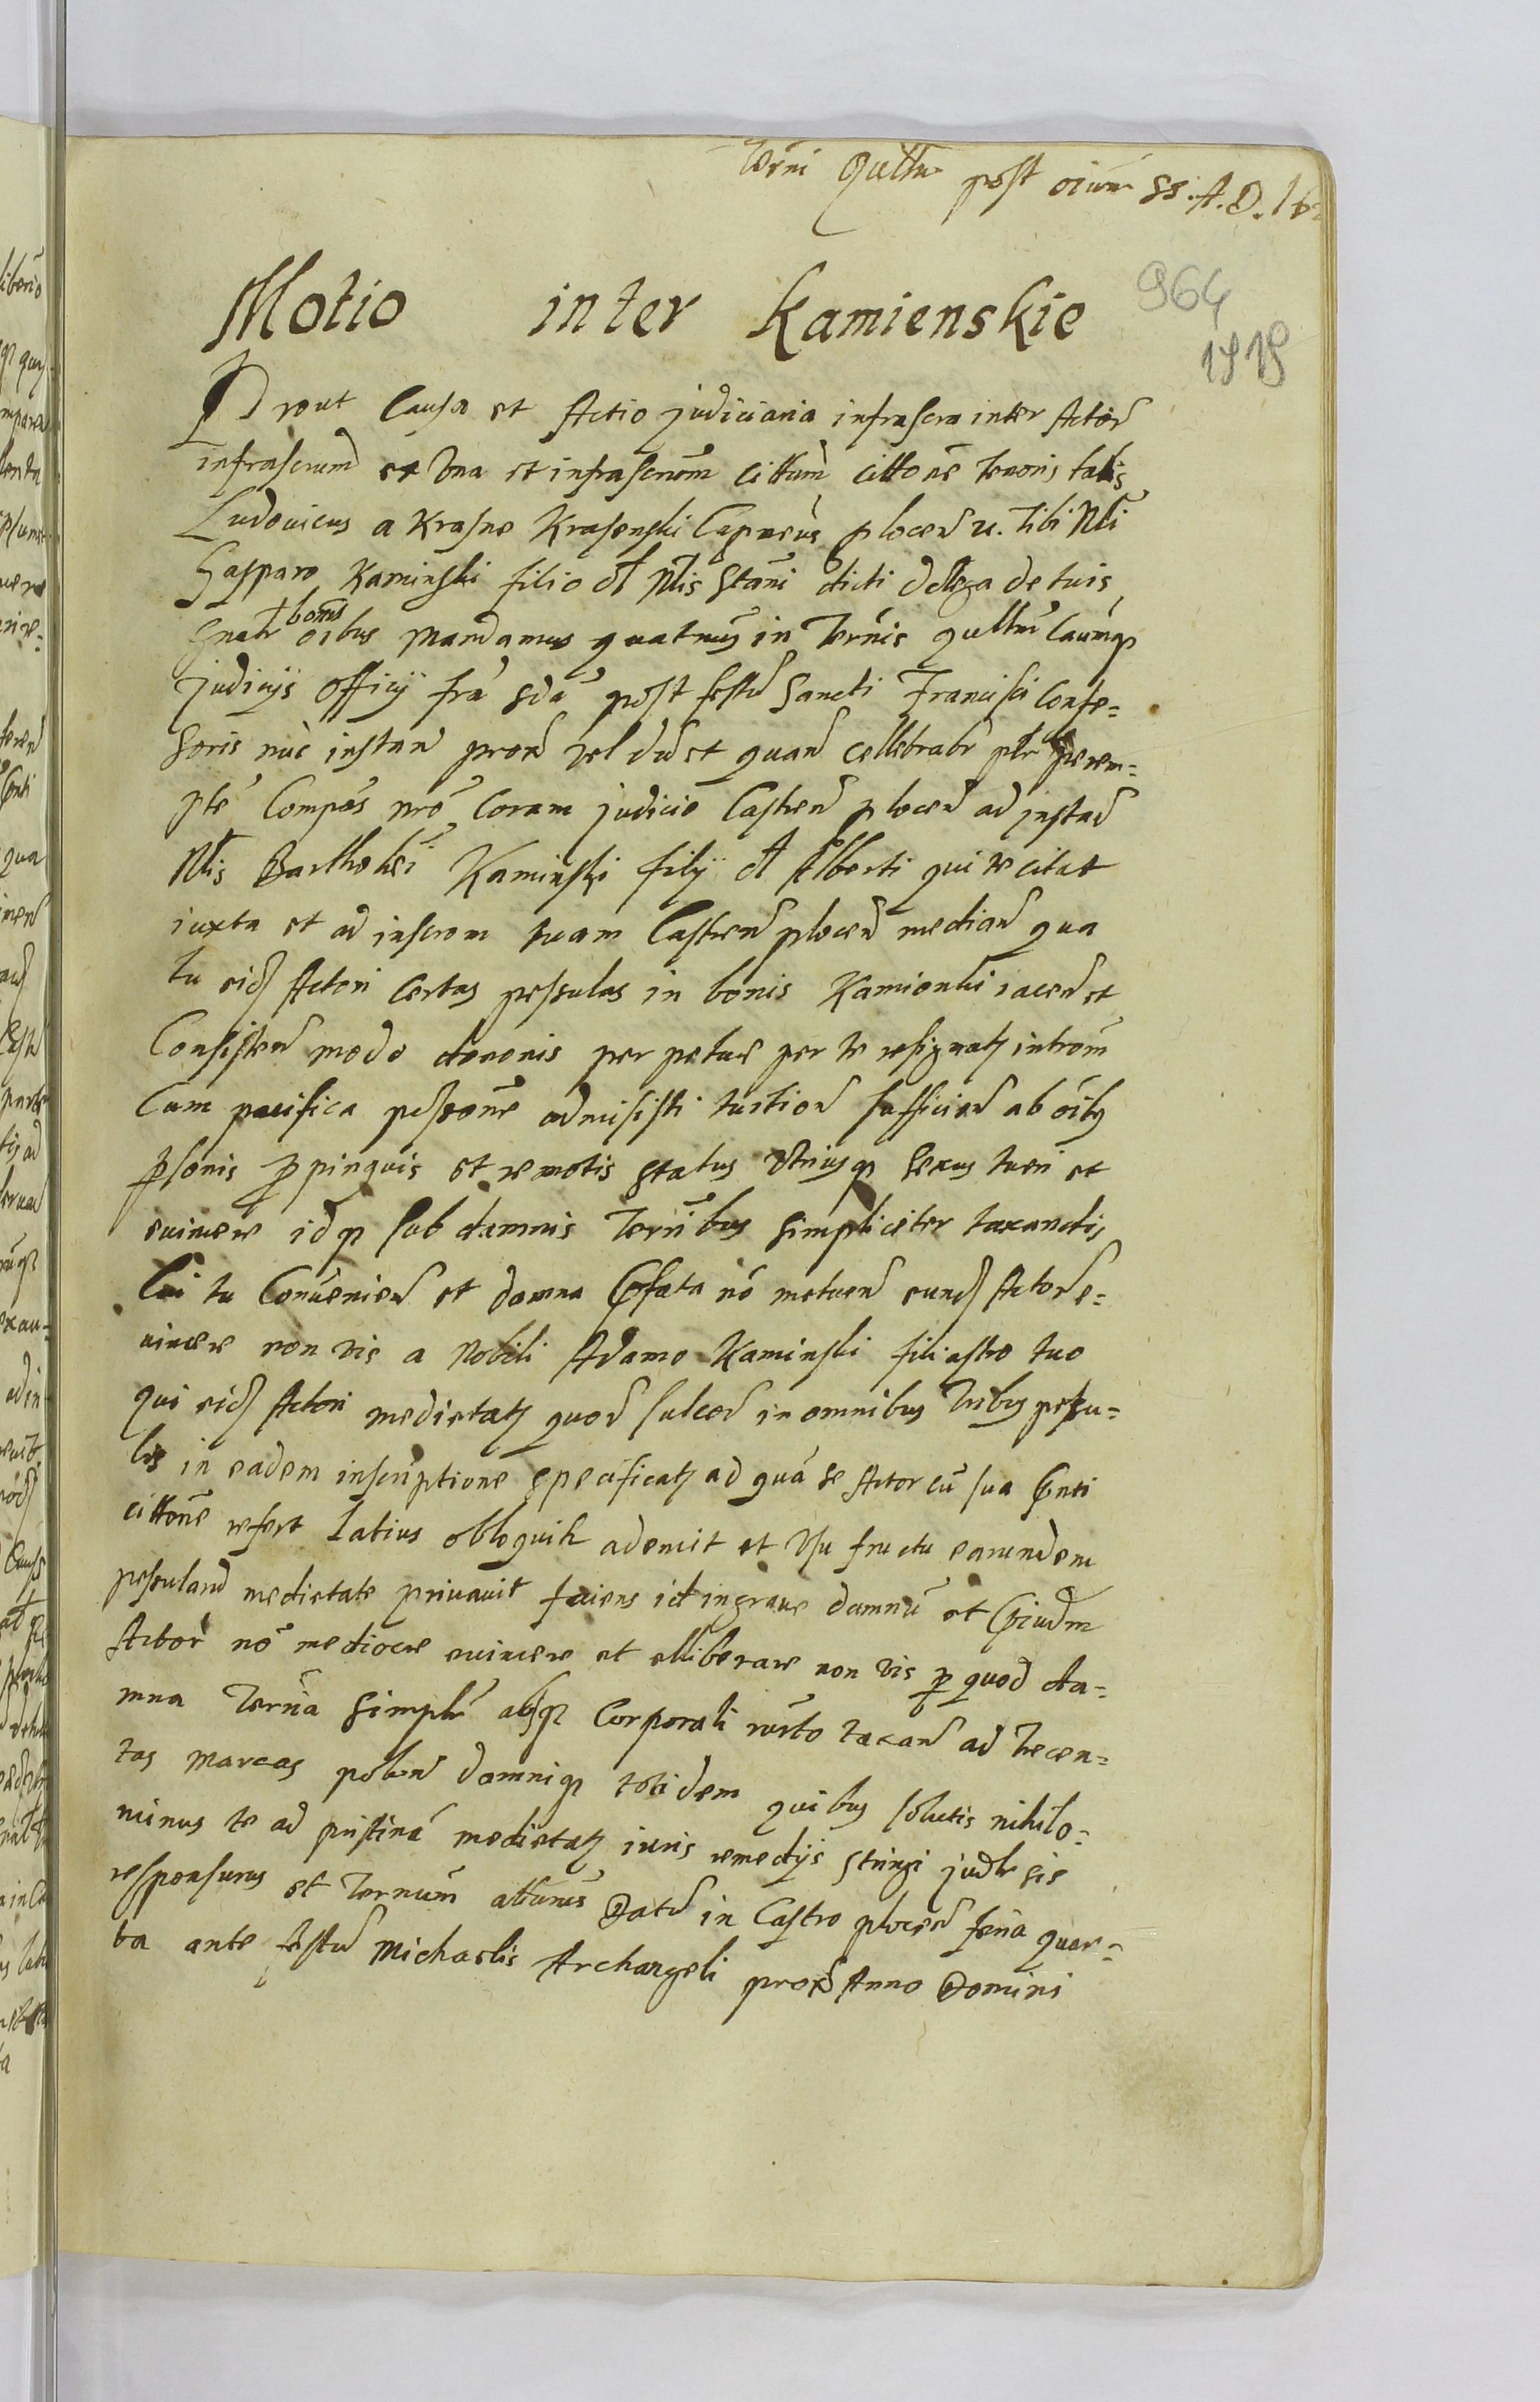 Terni Qultu post oium SS. A. D. 16
964
1818
Motio inter Kamienskie
Prout Causa et Actio judiciaria infrascra inter Actor
infrascrum ex Una et infrascrum cittum cittone tenoris talis
Ludovicus a Krasne Krasenski Capneus plocen ut. Tibi Nli
Gasparo Kaminski filio ol Nlis Stani dicti dluga de tuis
gnalr bonis oibus Mandamus quatnus in Ternis qultum Caumqz
judicijs officij fra sda post festu Sancti Francisci Confe=
soris nuc instan prox vel du et quan cellebrabr ptr perem=
pte Compas nro coram judicio Castren plocen ad instan
Nlis Bartholei Kaminski filij ol Alberti qui te citat
iuxta et ad inscrom tuam Castren plocen median qua
tu eid Actori certas pessulas in bonis Kamionki iacen et
Consisten modo donoNis perpetue per te resignatz introm
Cum pacifica pessone admisisti tuition sufficien ab oibz
psonis ppinquis et remotis status Utriusqz sexus tueri et
evincere idqz sub damnis Ternibus simpliciter taxandis
Cui tu Convenien et damna Gfata no metuen eund Actor e=
vincere non vis a Nobili Adamo Kaminski filiastro tuo
qui eid Actori medietatz quor sulcor in omnibus tribus pessu=
lis in eadem inscriptione specificatz ad qua se Actor cu sua Gnti
cittone refert latius obloquitr ademit et Usu fructu earundem
pessularu medietate privavit faciens id in grave damnu et Giudm
Actor no mediocre evincere et elliberare non vis p quod da=
mna Terria simplr absqz Corporali iurto taxan ad trecen=
tas marcas poben damniqz totidem quibus solutis nihilo=
minus te ad pristina medietatz iuris remedijs stringi judlr sis
responsurus et Ternum atturus Datu in Castro plocen feria quar=
ta ante festu Michaelis Archangeli prox Anno Domini